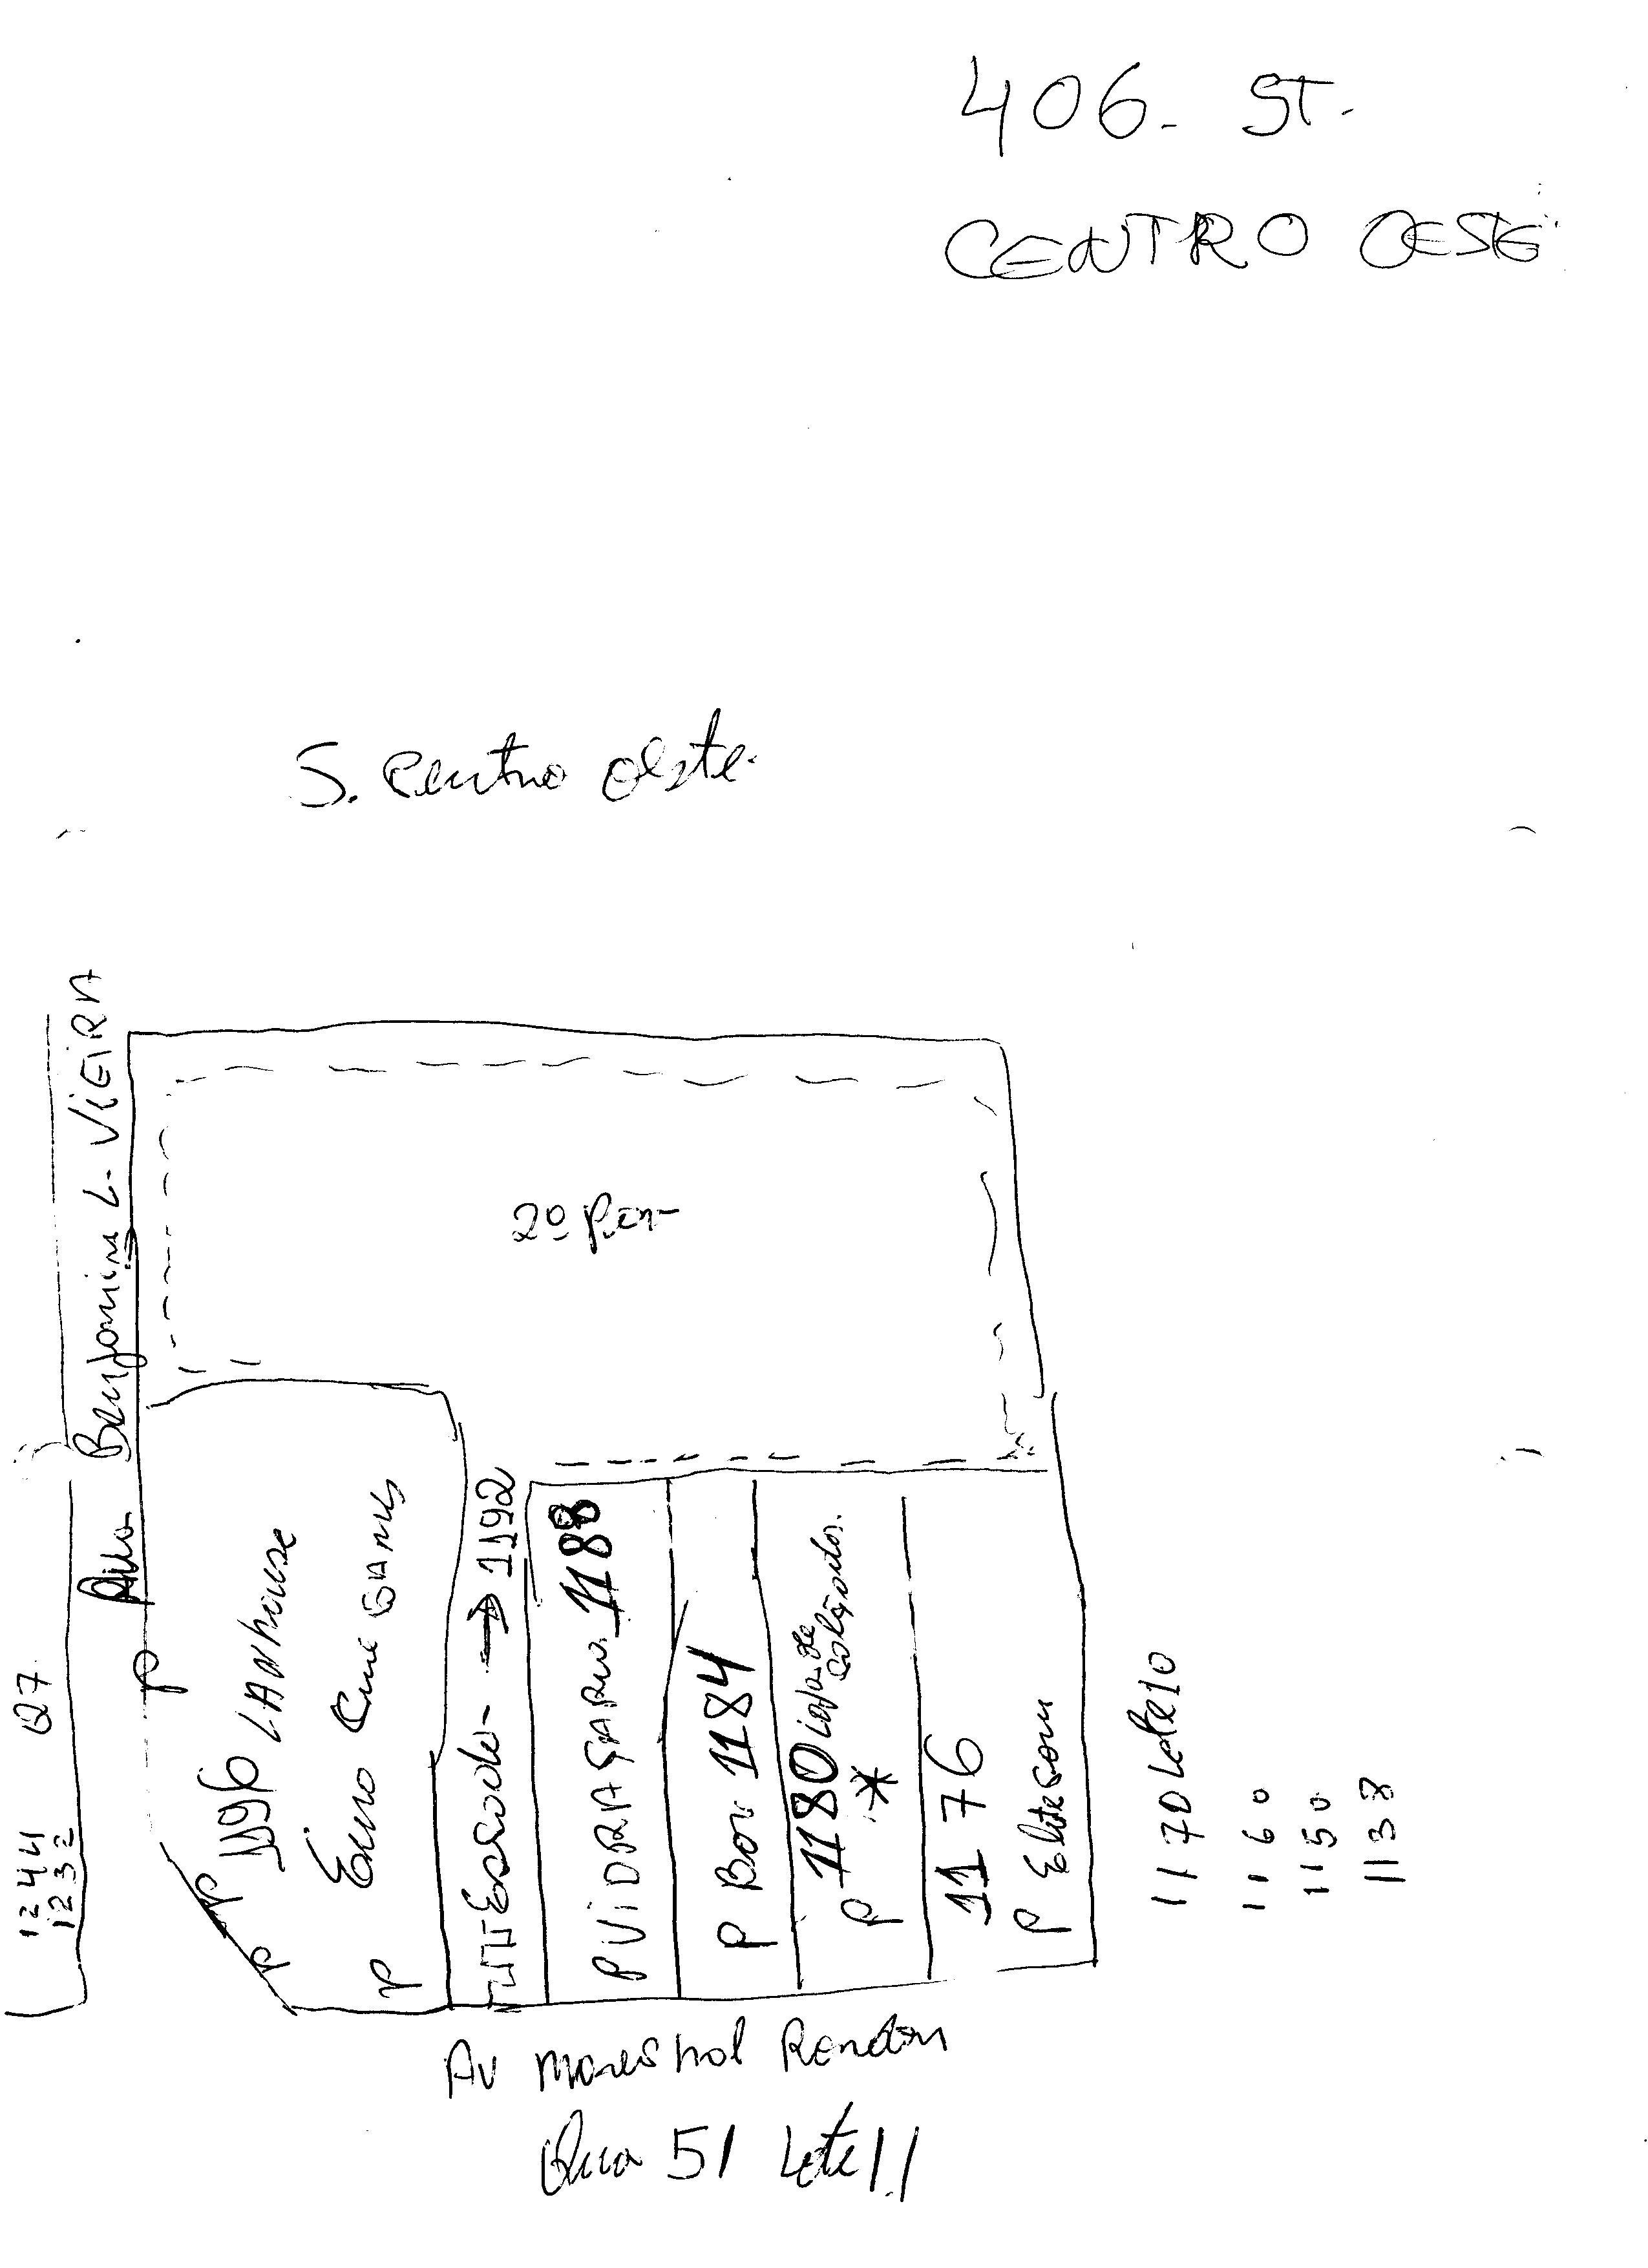 406. ST.
CENTRO OESTE
S. Centro Oeste.
Rua Benjamim L. VIEIRA
2º Pav
1244
1232
Q7
P
P
P
P
1196 LANhouse
Cine GAMES
Escada → 1192
P VIDRAÇARIA 1188
P Bar 1184
P 1180 Loja de
Colchões
*
1176
P Elite Som
1170 Lote 10
1160
1150
1138
Av Marechal Rondon
Qua 51 Lote 11